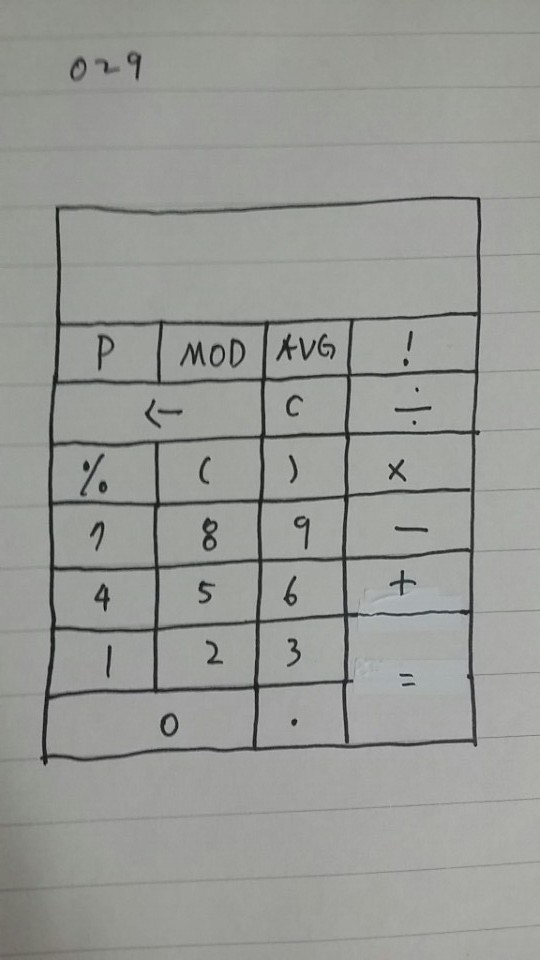 029
P MOD AVG !
← C ÷
% ( ) ×
7 8 9 −
4 5 6 +
1 2 3 =
0 .